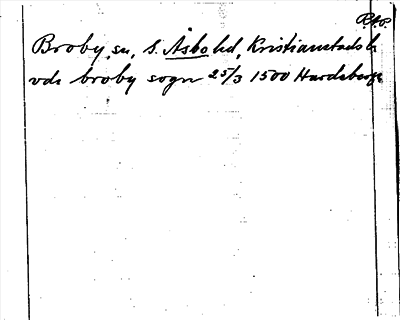 P.A.P.
Broby, sn, S. Åsbo hd, Kristianstads l.
vdr broby sogn 25/3 1500 Hardeberga